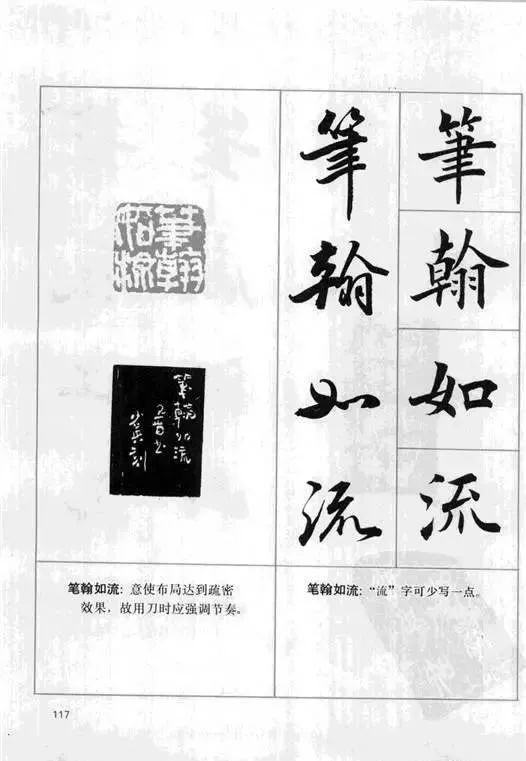 筆翰如流
筆翰如流
筆翰
如流
筆翰如流
笔翰如流：意使布局达到疏密
效果，故用刀时应强调节奏。
笔翰如流：“流”字可少写一点。
117